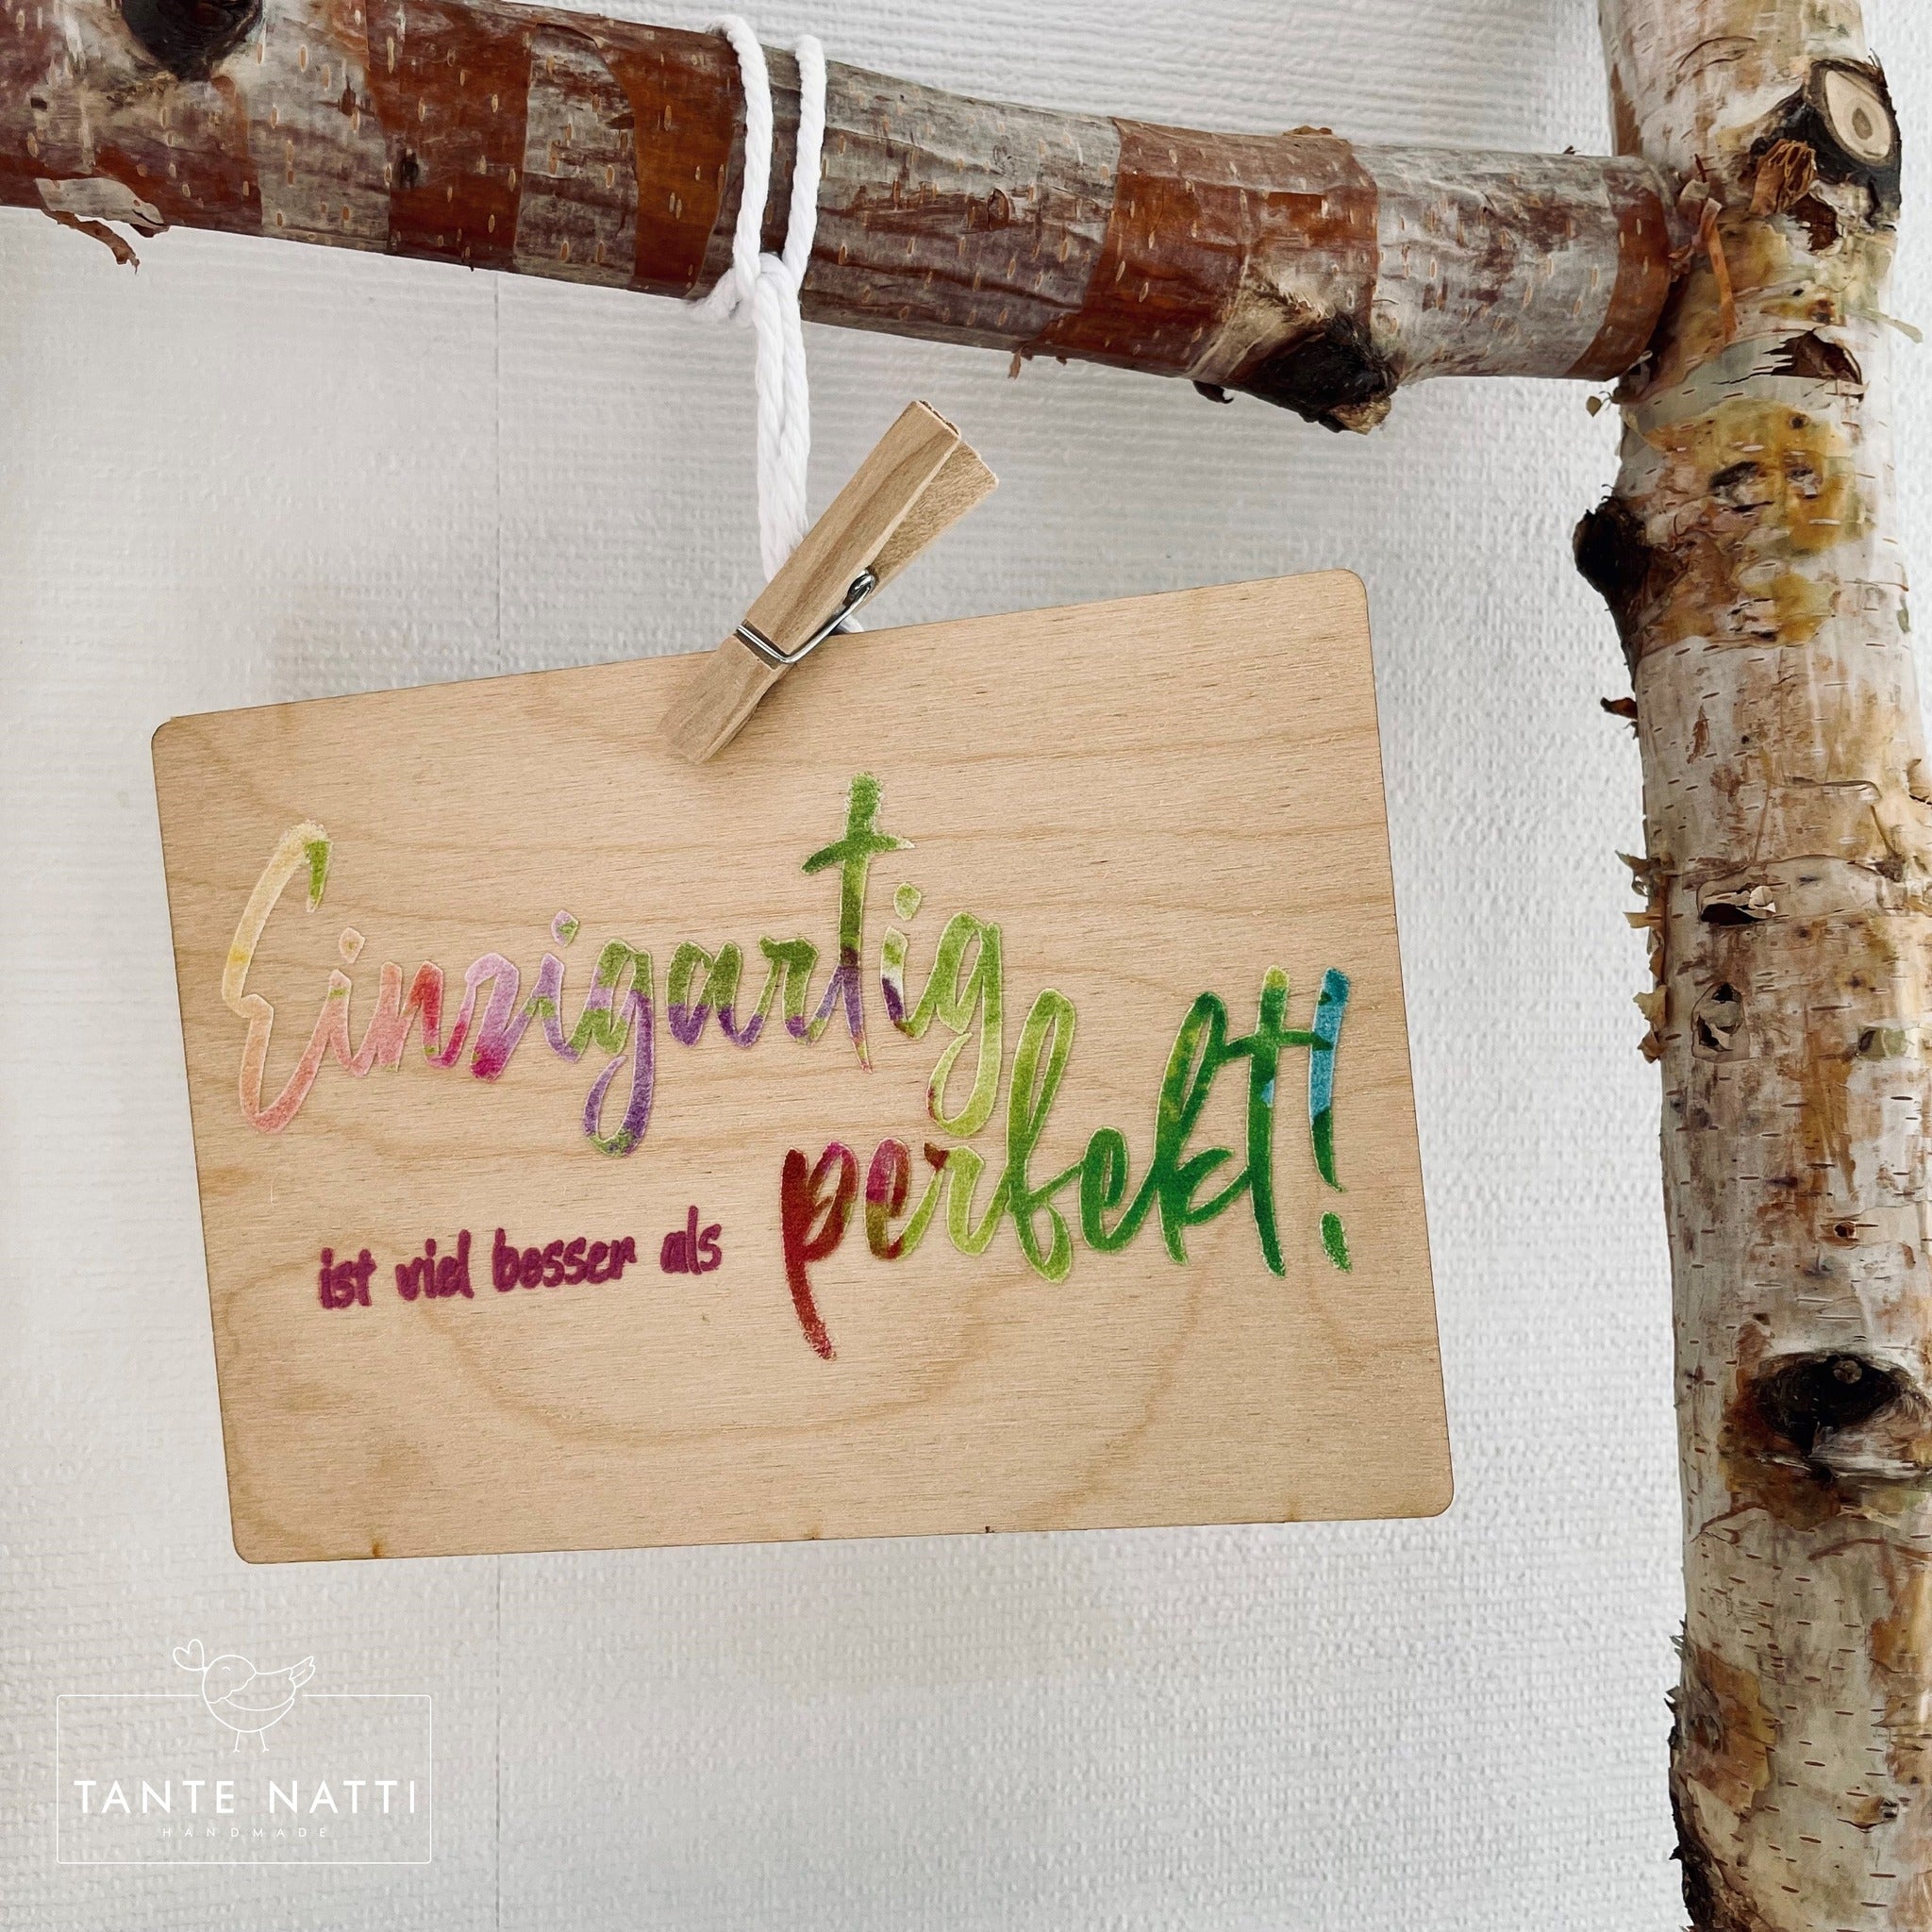 Einzigartig
ist viel besser als perfekt!
TANTE NATTI
HANDMADE